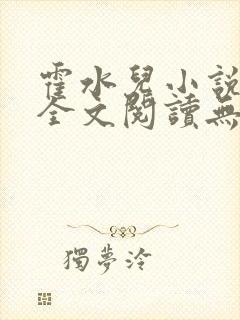 霍水兒小說
全文閱讀無
獨夢泠